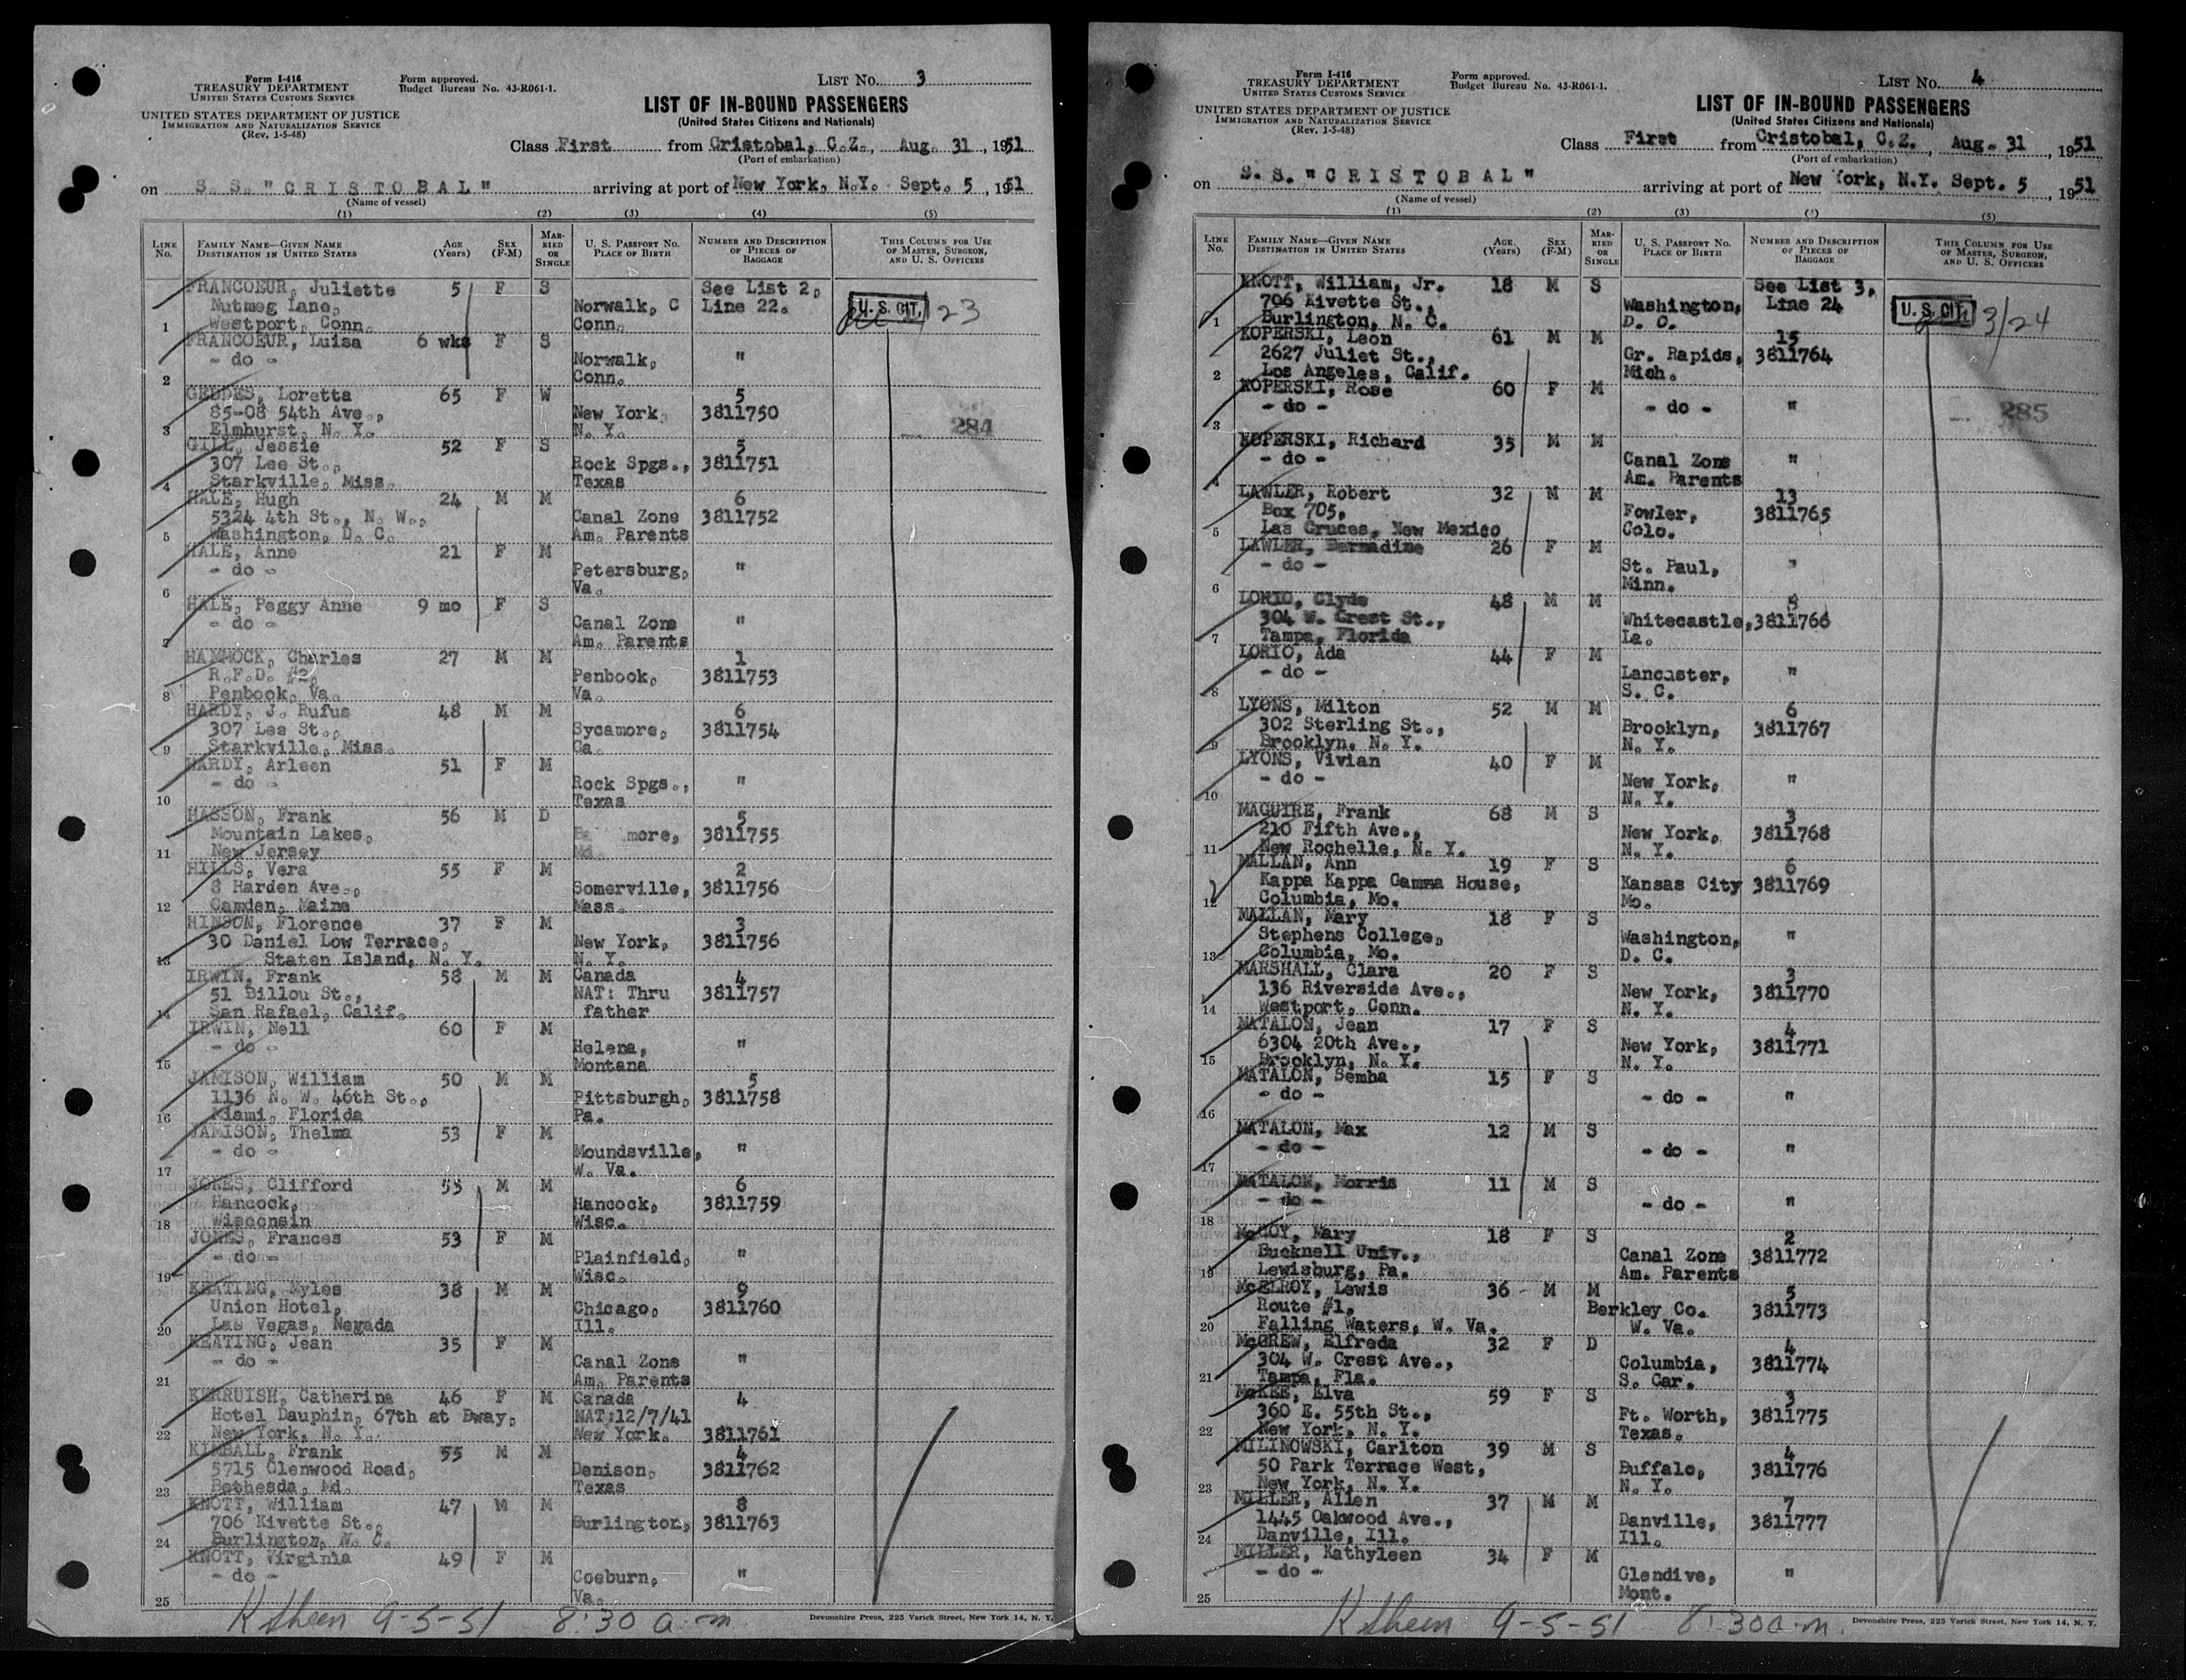 Form I-416
TREASURY DEPARTMENT
UNITED STATES CUSTOMS SERVICE
Form approved.
Budget Bureau No. 43-R061-1.
LIST NO. 3
UNITED STATES DEPARTMENT OF JUSTICE
IMMIGRATION AND NATURALIZATION SERVICE
(Rev. 1-5-48)
LIST OF IN-BOUND PASSENGERS
(United States Citizens and Nationals)
Class First from Cristobal, C.Z., Aug. 31, 1951
(Port of embarkation)
on S. S. "CRISTOBAL" arriving at port of New York, N.Y. Sept. 5, 1951
(Name of vessel)
(1) (2) (3) (4) (5)
LINE No. FAMILY NAME—GIVEN NAME DESTINATION IN UNITED STATES AGE (Years) SEX (F-M) MARRIED OR SINGLE U. S. PASSPORT NO. PLACE OF BIRTH NUMBER AND DESCRIPTION OF PIECES OF BAGGAGE THIS COLUMN FOR USE OF MASTER, SURGEON, AND U. S. OFFICERS
FRANCOEUR, Juliette 5 F S See List 2,
Nutmeg Lane, Norwalk, C Line 22. U. S. CIT. 23
1 Westport, Conn. Conn.
FRANCOEUR, Luisa 6 wks F S
- do - Norwalk, "
2 Conn.
GEDDES, Loretta 65 F W 5
85-08 54th Ave., New York 3811750
3 Elmhurst, N. Y. N. Y. 284
GILL, Jessie 52 F S 5
307 Lee St., Rock Spgs., 3811751
4 Starkville, Miss. Texas
HALE, Hugh 24 M M 6
5324 4th St., N. W., Canal Zone 3811752
5 Washington, D. C. Am. Parents
HALE, Anne 21 F M
- do - Petersburg, "
6 Va.
HALE, Peggy Anne 9 mo F S
- do - Canal Zone "
7 Am. Parents
HAMMOCK, Charles 27 M M 1
R.F.D. #2, Penbook, 3811753
8 Penbook, Va. Va.
HARDY, J. Rufus 48 M M 6
307 Lee St., Sycamore, 3811754
9 Starkville, Miss. Ga.
HARDY, Arleen 51 F M
- do - Rock Spgs., "
10 Texas
HASSON, Frank 56 M D 5
Mountain Lakes, Ba more, 3811755
11 New Jersey Md.
HILLS, Vera 55 F M 2
8 Harden Ave., Somerville, 3811756
12 Camden, Maine Mass.
HINSON, Florence 37 F M 3
30 Daniel Low Terrace, New York, 3811756
13 Staten Island, N. Y. N. Y.
IRWIN, Frank 58 M M Canada 4
51 Billou St., NAT: Thru 3811757
14 San Rafael, Calif. father
IRWIN, Nell 60 F M
- do - Helena, "
15 Montana
JAMISON, William 50 M M 5
1136 N. W. 46th St., Pittsburgh, 3811758
16 Miami, Florida Pa.
JAMISON, Thelma 53 F M
- do - Moundsville, "
17 W. Va.
JONES, Clifford 55 M M 6
Hancock, Hancock, 3811759
18 Wisconsin Wisc.
JONES, Frances 53 F M
- do - Plainfield, "
19 Wisc.
KEATING, Myles 38 M M 9
Union Hotel, Chicago, 3811760
20 Las Vegas, Nevada Ill.
KEATING, Jean 35 F M
- do - Canal Zone "
21 Am. Parents
KERRUISH, Catherine 46 F M Canada 4
Hotel Dauphin, 67th at Bway, NAT:12/7/41
22 New York, N. Y. New York. 3811761
KIMBALL, Frank 55 M M 4
5715 Glenwood Road, Denison, 3811762
23 Bethesda, Md. Texas
KNOTT, William 47 M M 8
706 Kivette St., Burlington, 3811763
24 Burlington, N. C.
KNOTT, Virginia 49 F M
- do - Coeburn, "
25 Va.
9-5-51 8:30 a.m.
Devonshire Press, 225 Varick Street, New York 14, N. Y.
Form I-416
TREASURY DEPARTMENT
UNITED STATES CUSTOMS SERVICE
Form approved.
Budget Bureau No. 43-R061-1.
LIST NO. 4
UNITED STATES DEPARTMENT OF JUSTICE
IMMIGRATION AND NATURALIZATION SERVICE
(Rev. 1-5-48)
LIST OF IN-BOUND PASSENGERS
(United States Citizens and Nationals)
Class First from Cristobal, C.Z., Aug. 31, 1951
(Port of embarkation)
on S. S. "CRISTOBAL" arriving at port of New York, N.Y. Sept. 5, 1951
(Name of vessel)
(1) (2) (3) (4) (5)
LINE No. FAMILY NAME—GIVEN NAME DESTINATION IN UNITED STATES AGE (Years) SEX (F-M) MARRIED OR SINGLE U. S. PASSPORT NO. PLACE OF BIRTH NUMBER AND DESCRIPTION OF PIECES OF BAGGAGE THIS COLUMN FOR USE OF MASTER, SURGEON, AND U. S. OFFICERS
KNOTT, William, Jr. 18 M S See List 3,
706 Kivette St., Washington, Line 24 U. S. CIT. 3/24
1 Burlington, N. C. D. C.
KOPERSKI, Leon 61 M M 15
2627 Juliet St., Gr. Rapids, 3811764
2 Los Angeles, Calif. Mich.
KOPERSKI, Rose 60 F M
- do - - do - " 285
3
KOPERSKI, Richard 35 M M
- do - Canal Zone "
4 Am. Parents
LAWLER, Robert 32 M M 13
Box 705, Fowler, 3811765
5 Las Cruces, New Mexico Colo.
LAWLER, Bernadine 26 F M
- do - St. Paul, "
6 Minn.
LORIO, Clyde 48 M M
304 W. Crest St., Whitecastle, 3811766
7 Tampa, Florida La.
LORIO, Ada 44 F M
- do - Lancaster, "
8 S. C.
LYONS, Milton 52 M M 6
302 Sterling St., Brooklyn, 3811767
9 Brooklyn, N. Y. N. Y.
LYONS, Vivian 40 F M
- do - New York, "
10 N. Y.
MAGUIRE, Frank 68 M S 3
210 Fifth Ave., New York, 3811768
11 New Rochelle, N. Y. N. Y.
MALLAN, Ann 19 F S 6
Kappa Kappa Gamma House, Kansas City 3811769
12 Columbia, Mo. Mo.
MALLAN, Mary 18 F S
Stephens College, Washington, "
13 Columbia, Mo. D. C.
MARSHALL, Clara 20 F S 3
136 Riverside Ave., New York, 3811770
14 Westport, Conn. N. Y.
MATALON, Jean 17 F S 4
6304 20th Ave., New York, 3811771
15 Brooklyn, N. Y. N. Y.
MATALON, Semha 15 F S
- do - - do - "
16
MATALON, Max 12 M S
- do - - do - "
17
MATALON, Morris 11 M S
- do - - do - "
18
McCOY, Mary 18 F S 2
Bucknell Univ., Canal Zone 3811772
19 Lewisburg, Pa. Am. Parents
McELROY, Lewis 36 M M 5
Route #1, Berkley Co. 3811773
20 Falling Waters, W. Va. W. Va.
McGREW, Elfreda 32 F D 4
304 W. Crest Ave., Columbia, 3811774
21 Tampa, Fla. S. Car.
McKEE, Elva 59 F S 3
360 E. 55th St., Ft. Worth, 3811775
22 New York, N. Y. Texas.
MILINOWSKI, Carlton 39 M S 4
50 Park Terrace West, Buffalo, 3811776
23 New York, N. Y. N. Y.
MILLER, Allen 37 M M 7
1445 Oakwood Ave., Danville, 3811777
24 Danville, Ill. Ill.
MILLER, Kathyleen 34 F M
- do - Glendive, "
25 Mont.
9-5-51 8:30 a.m.
Devonshire Press, 225 Varick Street, New York 14, N. Y.